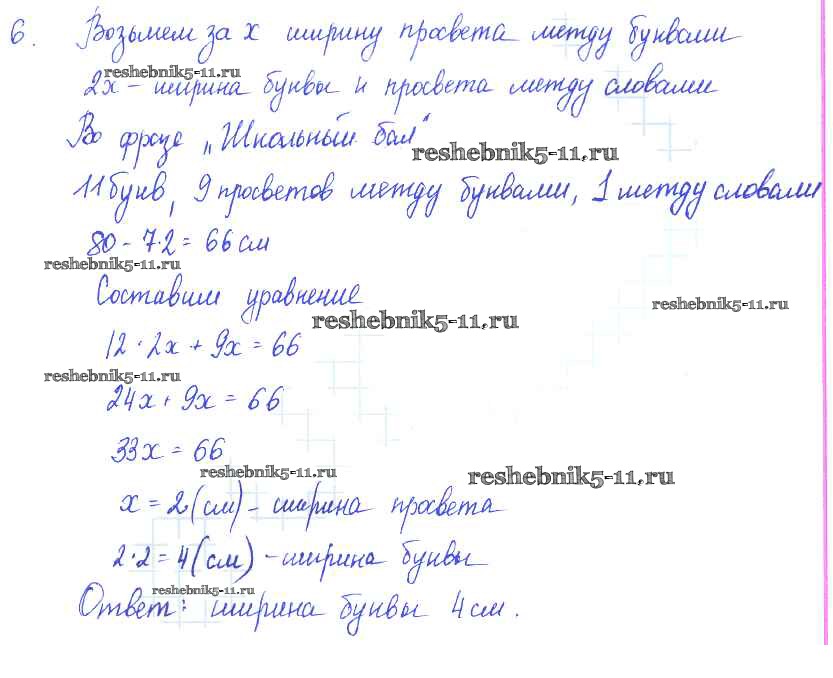 6. Возьмем за x ширину просвета между буквами
reshebnik5-11.ru
2x – ширина буквы и просвета между словами
Во фразе „Школьный бал“
reshebnik5-11.ru
11 букв, 9 просветов между буквами, 1 между словами
80 – 7·2 = 66 см
reshebnik5-11.ru
Составим уравнение
reshebnik5-11.ru
reshebnik5-11.ru
12 · 2x + 9x = 66
reshebnik5-11.ru
24x + 9x = 66
33x = 66
reshebnik5-11.ru
reshebnik5-11.ru
x = 2 (см) – ширина просвета
2·2 = 4 (см) – ширина буквы
reshebnik5-11.ru
Ответ: ширина буквы 4 см.